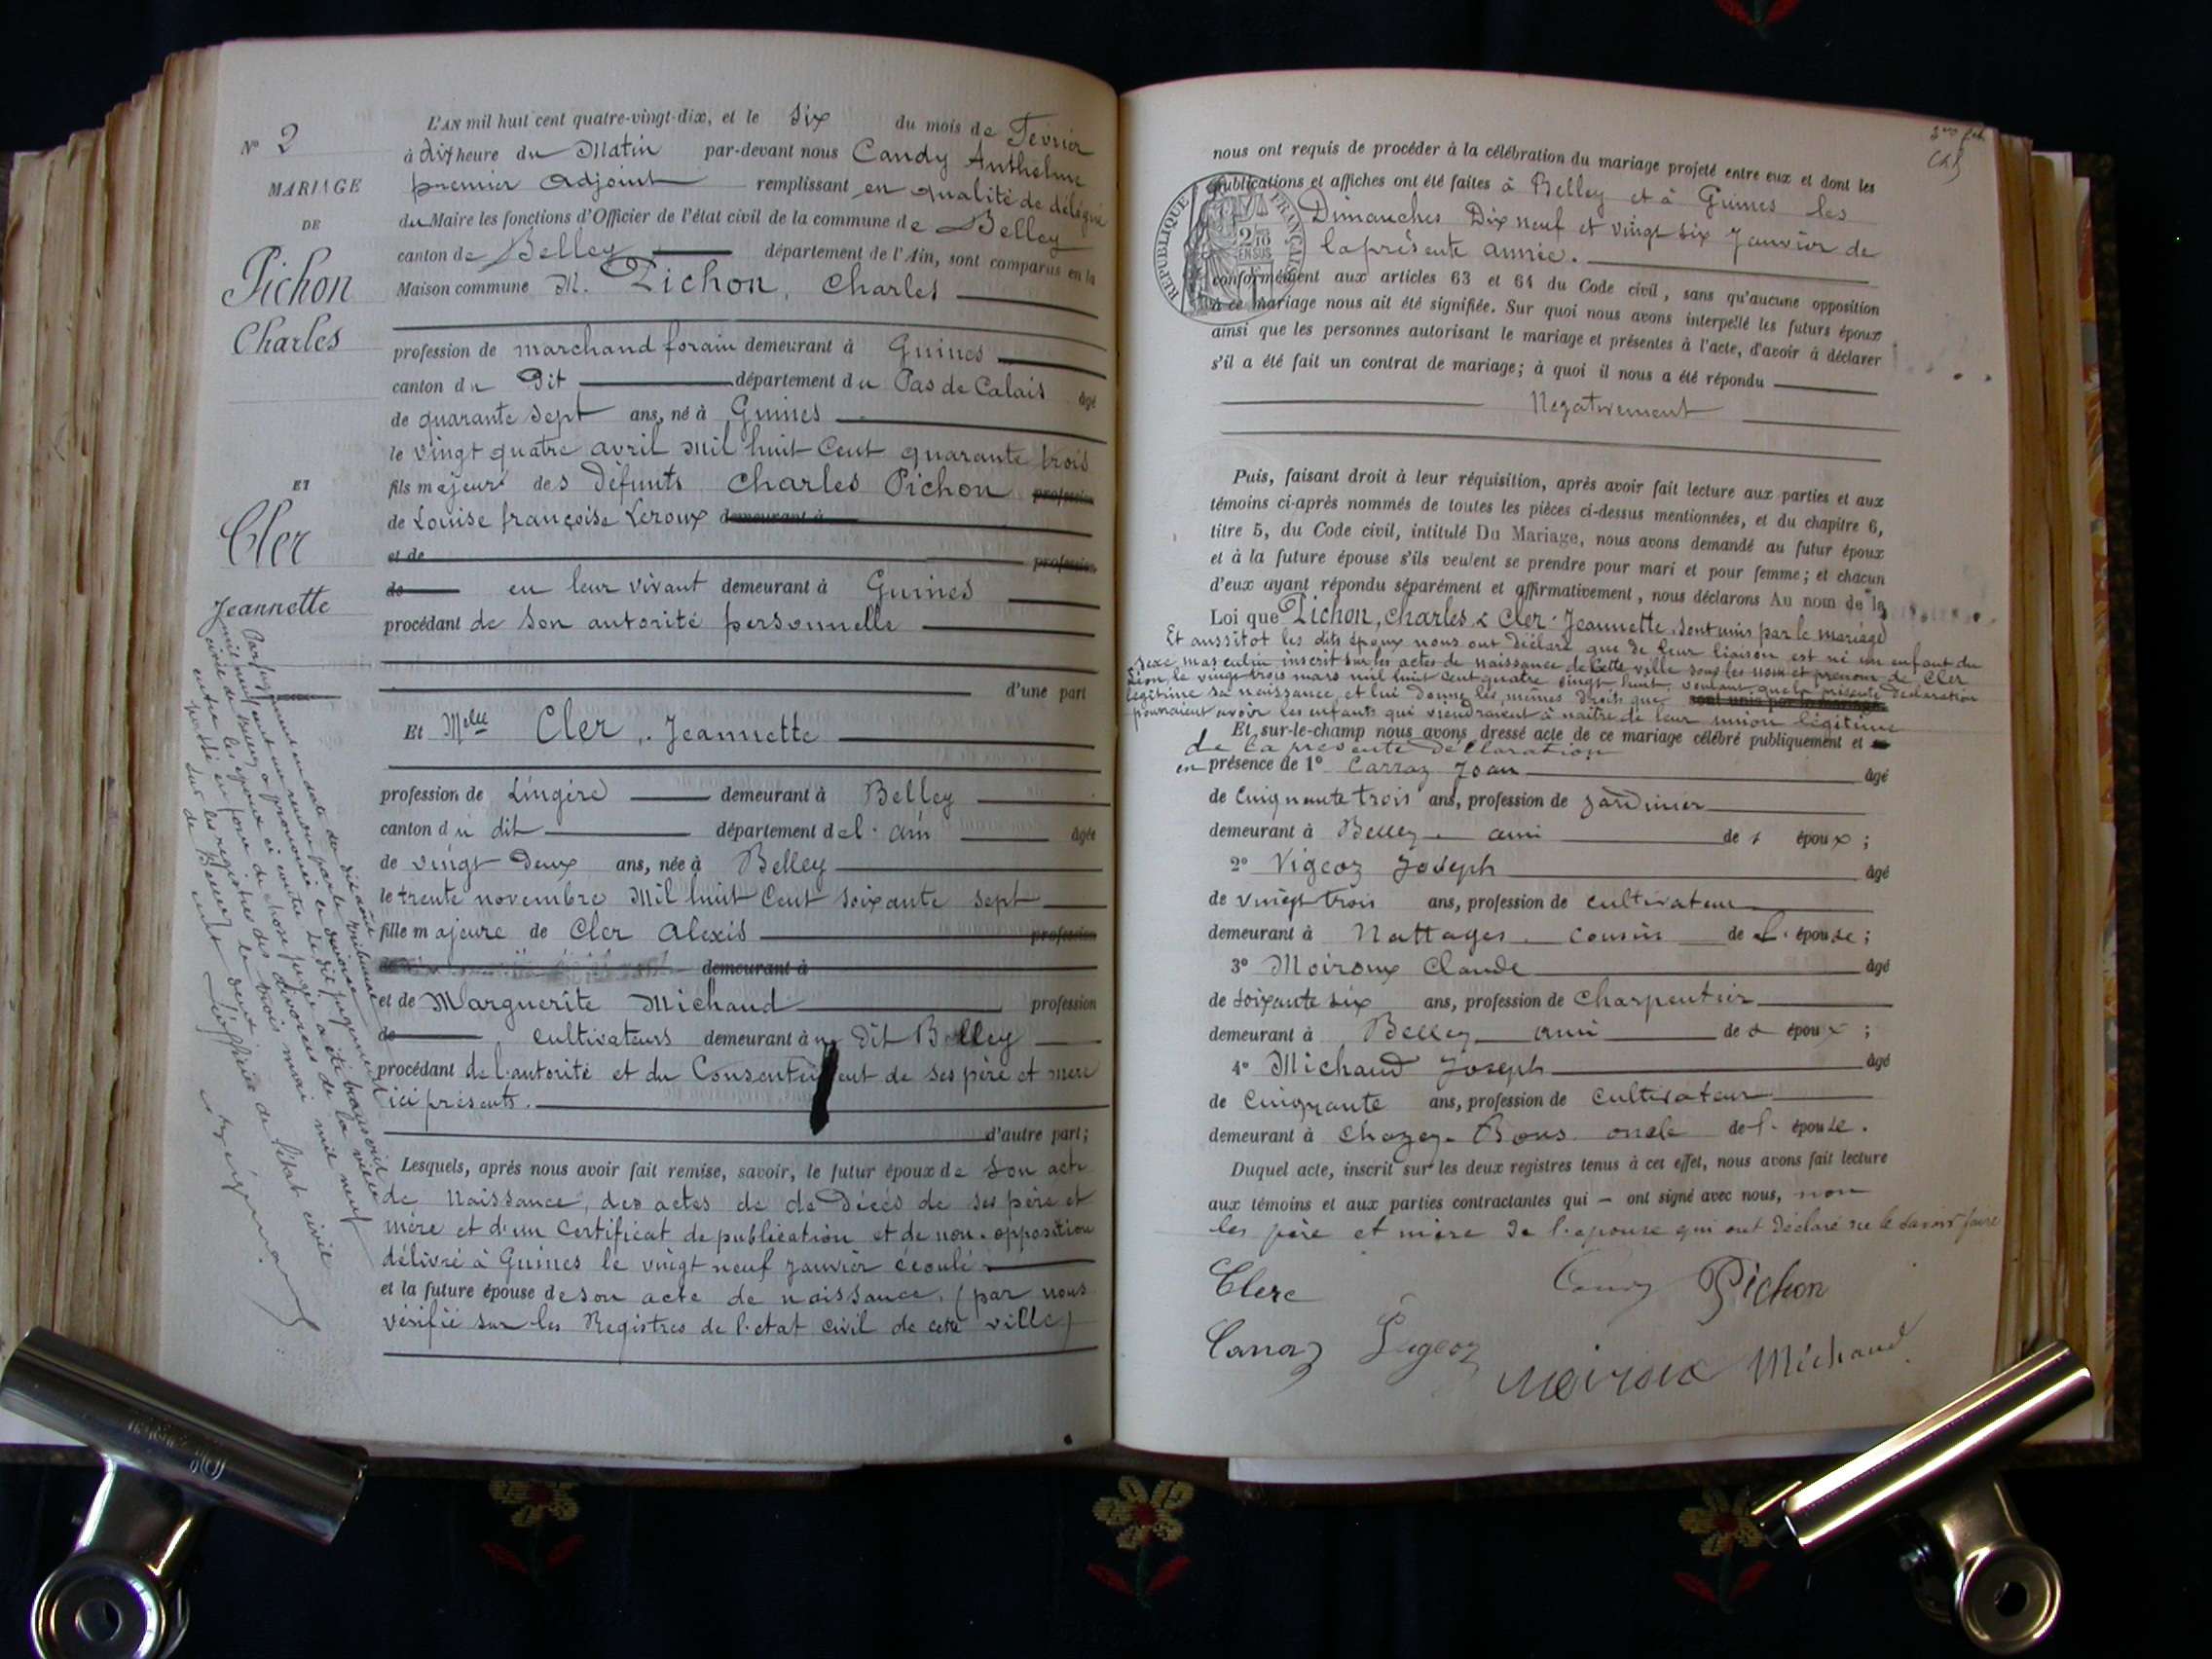 N° 2
MARIAGE
DE
Pichon
Charles
ET
Cler
Jeannette
L'AN mil huit cent quatre-vingt-dix, et le six du mois de Fevrier
à dix heure du Matin par-devant nous Candy Anthelme
premier adjoint remplissant en qualité de délégué
du Maire les fonctions d'Officier de l'état civil de la commune de Belley
canton de Belley département de l'Ain, sont comparus en la
Maison commune M. Pichon, Charles
profession de marchand forain demeurant à Guines
canton du Dit département du Pas de Calais âgé
de quarante sept ans, né à Guines
le vingt quatre avril mil huit Cent quarante trois
fils majeur des défunts Charles Pichon profession
de Louise françoise Leroux demeurant à
et de profession
de en leur vivant demeurant à Guines
procédant de son autorité personnelle
d'une part
Et Melle Cler, Jeannette
profession de Lingère demeurant à Belley
canton du dit département de l'ain âgée
de vingt Deux ans, née à Belley
le trente novembre Mil huit Cent soixante sept
fille majeure de Cler Alexis profession
demeurant à
et de Marguerite Michaud profession
de cultivateurs demeurant à Dit Belley
procédant de l'autorité et du Consentement de ses père et mère
ici présents.
d'autre part;
Lesquels, après nous avoir fait remise, savoir, le futur époux de son acte
de Naissance, des actes de de Décès de ses père et
mère et d'un Certificat de publication et de non-opposition
délivré à Guines le vingt neuf janvier écoulé
et la future épouse de son acte de naissance, (par nous
vérifié sur les Registres de l'etat civil de cette ville)
Par jugement en date du dix août
mil neuf cent un rendu par le tribunal
civil de Belley a prononcé le divorce
entre les époux ci contre. Le dit jugement
passé en force de chose jugée a été transcrit
sur les registres des divorces de la ville
de Belley le trois mai mil neuf
cent deux
L'officier de l'état civil
nous ont requis de procéder à la célébration du mariage projeté entre eux et dont les
publications et affiches ont été faites à Belley et à Guines les
Dimanches Dix neuf et vingt six Janvier de
la présente année.
REPUBLIQUE FRANÇAISE
2/10 EN SUS
conformément aux articles 63 et 64 du Code civil, sans qu'aucune opposition
à ce mariage nous ait été signifiée. Sur quoi nous avons interpellé les futurs époux
ainsi que les personnes autorisant le mariage et présentes à l'acte, d'avoir à déclarer
s'il a été fait un contrat de mariage; à quoi il nous a été répondu
Negativement
Puis, faisant droit à leur réquisition, après avoir fait lecture aux parties et aux
témoins ci-après nommés de toutes les pièces ci-dessus mentionnées, et du chapitre 6,
titre 5, du Code civil, intitulé Du Mariage, nous avons demandé au futur époux
et à la future épouse s'ils veulent se prendre pour mari et pour femme; et chacun
d'eux ayant répondu séparément et affirmativement, nous déclarons Au nom de la
Loi que Pichon, Charles & Cler Jeannette, sont unis par le mariage
Et aussitot les dits époux nous ont déclaré que de leur liaison est né un enfant du
sexe masculin inscrit sur les actes de naissance de cette ville sous les nom et prenom de Cler
Léon, le vingt trois mars mil huit cent quatre vingt huit, voulant que la présente déclaration
légitime sa naissance et lui donne les mêmes droits que sont unis par le mariage
pourraient avoir les enfants qui viendraient à naitre de leur union légitime
Et sur-le-champ nous avons dressé acte de ce mariage célébré publiquement et
de la présente déclaration
en présence de 1° Carraz Jean âgé
de Cinquante trois ans, profession de jardinier
demeurant à Belley ami de l'époux;
2° Vigeoz Joseph âgé
de vingt trois ans, profession de cultivateur
demeurant à Nattages cousin de l'épouse;
3° Moiroux Claude âgé
de soixante six ans, profession de Charpentier
demeurant à Belley ami de l'époux;
4° Michaud Joseph âgé
de Cinquante ans, profession de Cultivateur
demeurant à Chazey-Bons oncle de l'épouse.
Duquel acte, inscrit sur les deux registres tenus à cet effet, nous avons fait lecture
aux témoins et aux parties contractantes qui – ont signé avec nous, non
les père et mère de l'epouse qui ont déclaré ne le savoir faire
Clerc Candy Pichon
Carraz Vigeoz Moiroux Michaud